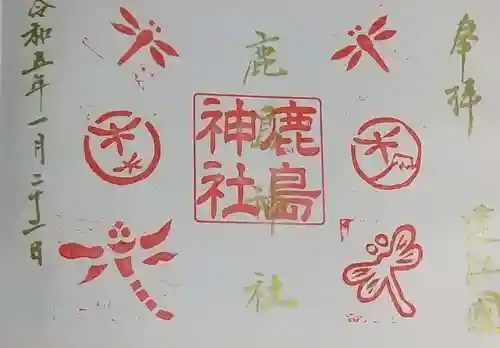 奉拝
鹿島神社
鹿島神社
令和五年一月二十二日